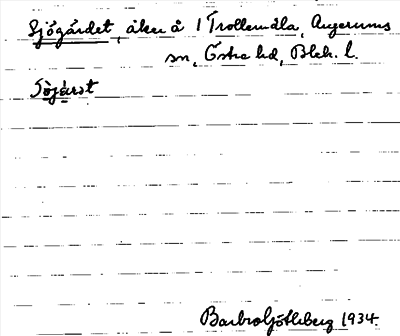 Sjögärdet, åker å 1 Trollemåla, Augerums
sn, Östra hd, Blek. l.
Barbro Götlsberg 1934.